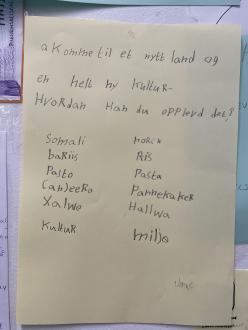 å komme til et nytt land og
en helt ny kultur-
Hvordan Han du opplevd det?
Somali norsk
bariis Ris
Pasto Pasta
Canjeero Pannekaker
Xalwo Hallwa
Kultur miljø